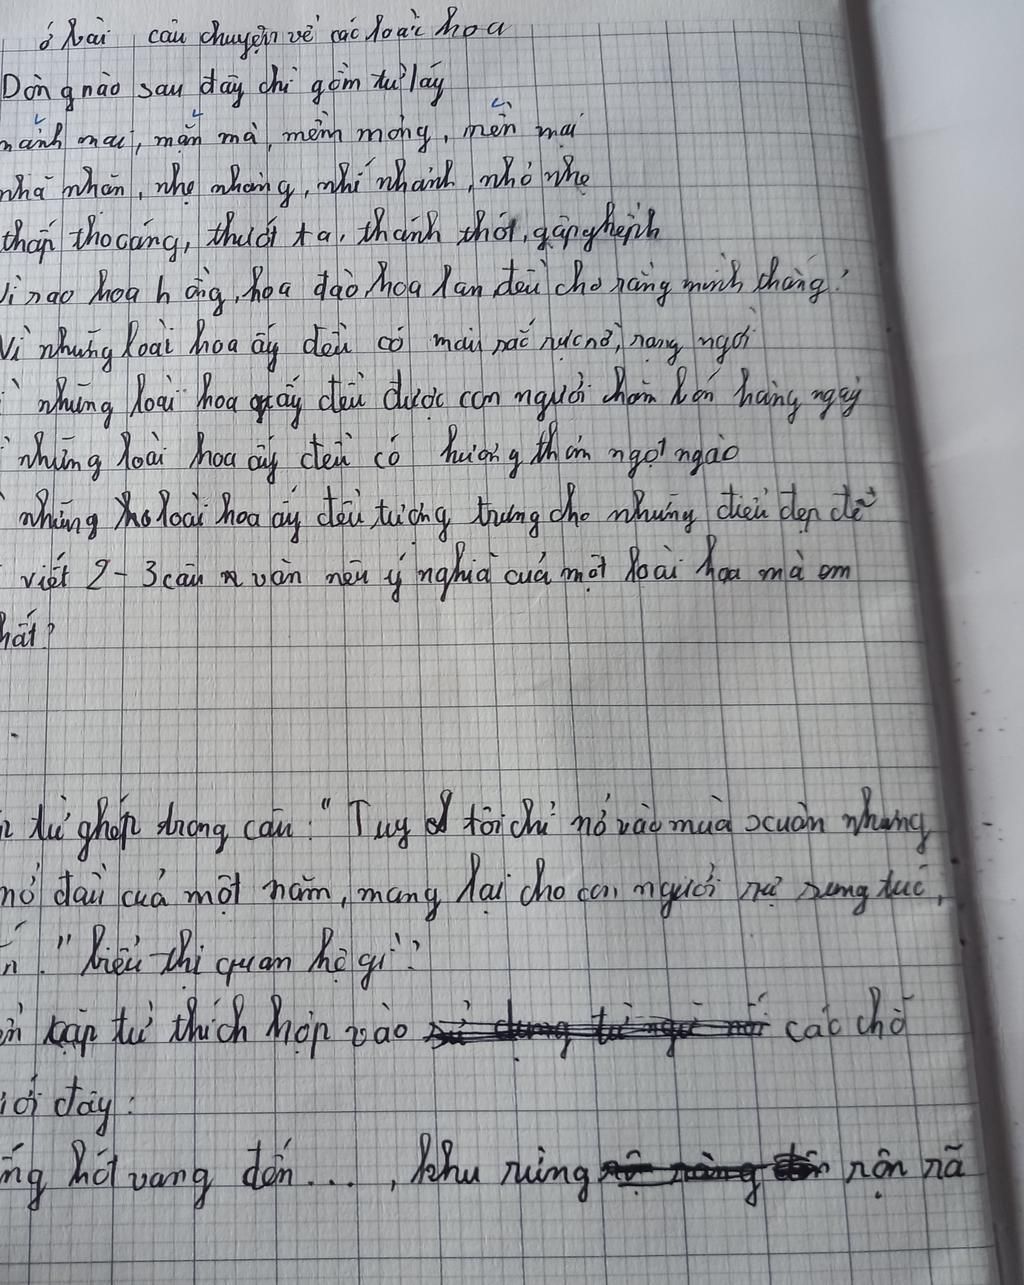 ở bài câu chuyện về các loài hoa
Dòng nào sau đây chỉ gồm từ láy
mảnh mai, mặn mà, mềm mỏng, mền mại
nhã nhặn, nhẹ nhàng, nhí nhảnh, nhỏ nhẹ
thấp thoáng, thướt tha, thánh thót, gập ghềnh
Vì sao hoa hồng, hoa đào, hoa lan đều cho rằng mình
Vì những loài hoa ấy đều có màu sắc rực rỡ, rạng ngời
những loài hoa ấy đều được con người chăm bón hàng ngày
những loài hoa ấy đều có hương thơm ngọt ngào
những loài hoa ấy đều tượng trưng cho những điều đẹp đẽ
viết 2-3 câu văn nêu ý nghĩa của một loài hoa mà em
từ ghép trong câu: "Tuy tôi chỉ nở vào mùa xuân nhưng
đầu của một năm, mang lại cho con người sự sung túc,
" biểu thị quan hệ gì?
cặp từ thích hợp vào các chỗ
đây:
hót vang đến ..., khu rừng rộn rã